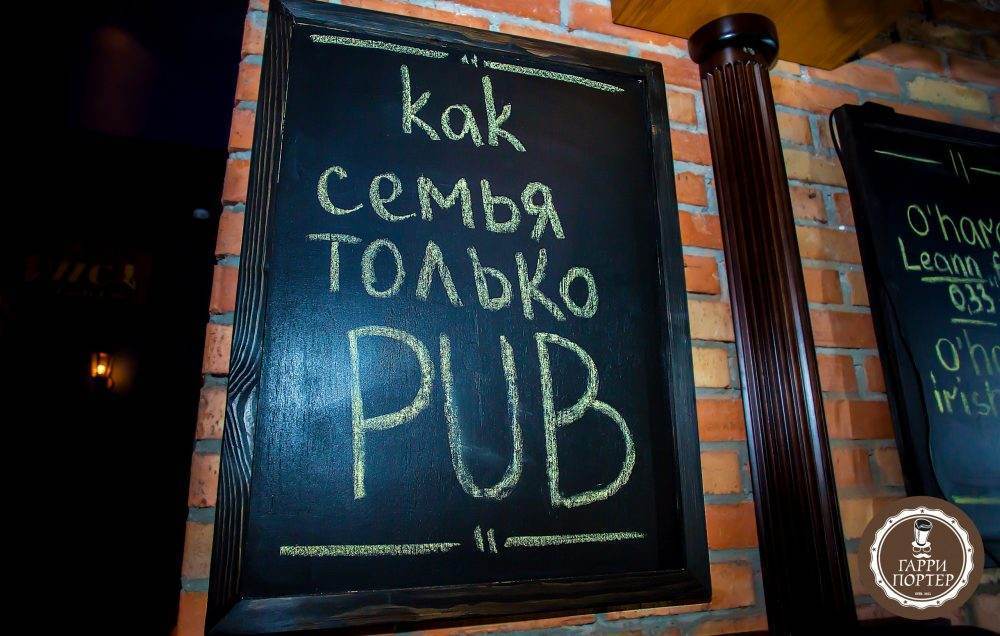 как
семья
только
PUB
O'hara
Leann
0,33
irish
ГАРРИ
ПОРТЕР